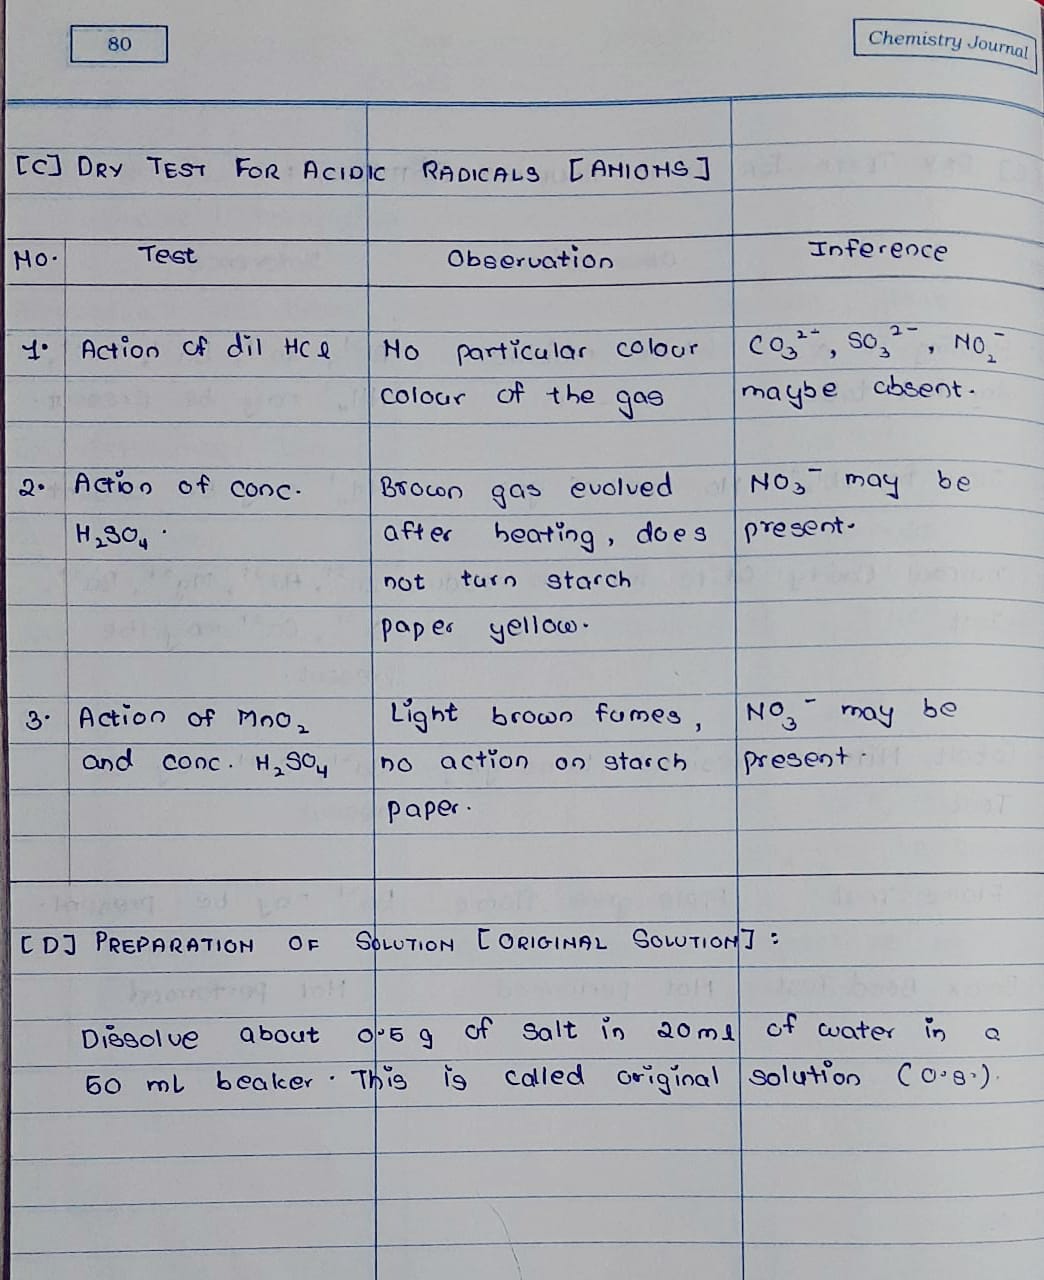 80
Chemistry Journal
[C] DRY TEST FOR ACIDIC RADICALS [ANIONS]
No. Test Observation Inference
1. Action of dil HCl No particular colour CO₃²⁻, SO₃²⁻, NO₂⁻
colour of the gas maybe absent.
2. Action of conc. Brown gas evolved NO₃⁻ may be
H₂SO₄. after heating, does present.
not turn starch
paper yellow.
3. Action of MnO₂ Light brown fumes, NO₃⁻ may be
and conc. H₂SO₄ no action on starch present
paper.
[D] PREPARATION OF SOLUTION [ORIGINAL SOLUTION] :
Dissolve about 0.5 g of salt in 20 ml of water in a
50 mL beaker. This is called original solution (O.S.).